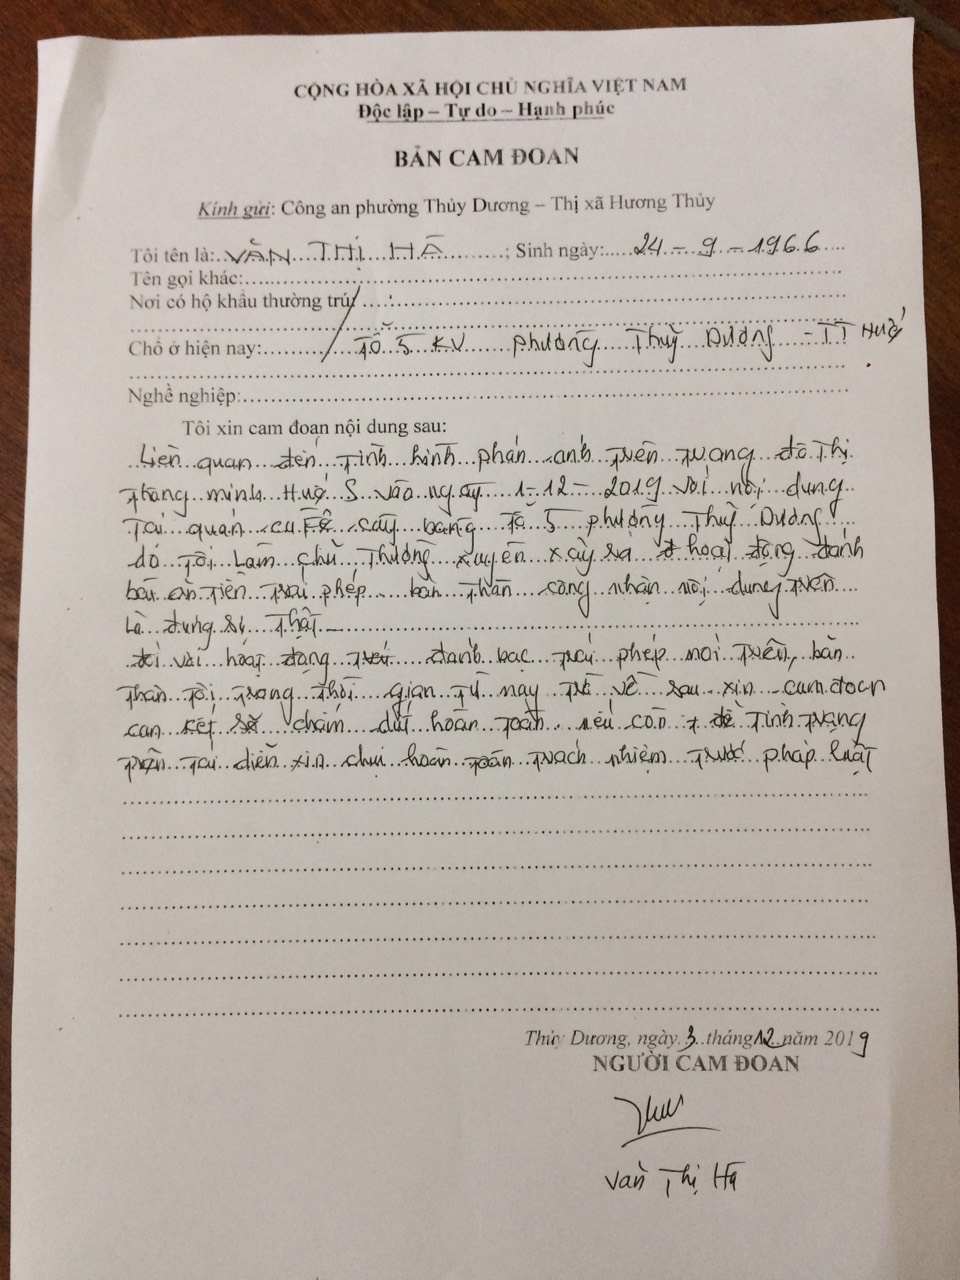 CỘNG HÒA XÃ HỘI CHỦ NGHĨA VIỆT NAM
Độc lập – Tự do – Hạnh phúc
BẢN CAM ĐOAN
Kính gửi: Công an phường Thủy Dương – Thị xã Hương Thủy
Tôi tên là: VĂN THỊ HÀ; Sinh ngày: 24 - 9 - 1966
Tên gọi khác:
Nơi có hộ khẩu thường trú:
Chỗ ở hiện nay: Tổ 5 KV phường Thuỷ Dương - TT Huế
Nghề nghiệp:
Tôi xin cam đoan nội dung sau:
Liên quan đến tình hình phản ánh trên trang đô thị
thông minh Huế S vào ngày 1-12-2019 với nội dung
Tại quán cà fê cây bàng tổ 5 phường Thuỷ Dương
do tôi làm chủ thường xuyên xảy ra hoạt động đánh
bài ăn tiền trái phép bản thân công nhận nội dung trên
là đúng sự thật
đối với hoạt động đánh bạc trái phép nói trên, bản
thân tôi trong thời gian từ nay trở về sau xin cam đoan
cam kết sẽ chấm dứt hoàn toàn nếu còn để tình trạng
trên tái diễn xin chịu hoàn toàn trách nhiệm trước pháp luật
Thủy Dương, ngày 3 tháng 12 năm 2019
NGƯỜI CAM ĐOAN
Văn Thị Hà